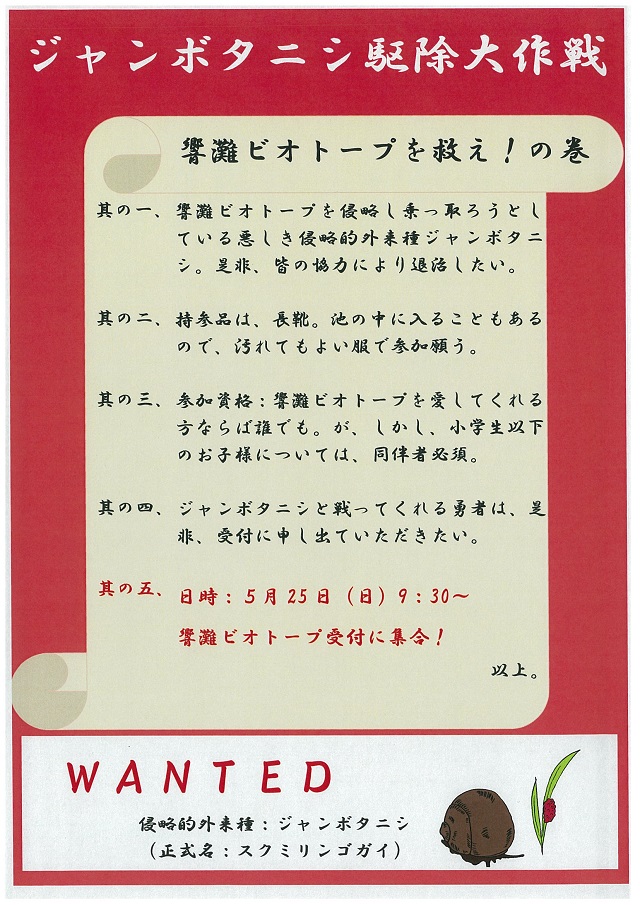 ジャンボタニシ駆除大作戦
響灘ビオトープを救え！の巻
其の一、響灘ビオトープを侵略し乗っ取ろうとし
ている悪しき侵略的外来種ジャンボタニ
シ。是非、皆の協力により退治したい。
其の二、持参品は、長靴。池の中に入ることもある
ので、汚れてもよい服で参加願う。
其の三、参加資格：響灘ビオトープを愛してくれる
方ならば誰でも。が、しかし、小学生以下
のお子様については、同伴者必須。
其の四、ジャンボタニシと戦ってくれる勇者は、是
非、受付に申し出ていただきたい。
其の五、日時：５月25日（日）9：30～
響灘ビオトープ受付に集合！
以上。
WANTED
侵略的外来種：ジャンボタニシ
（正式名：スクミリンゴガイ）